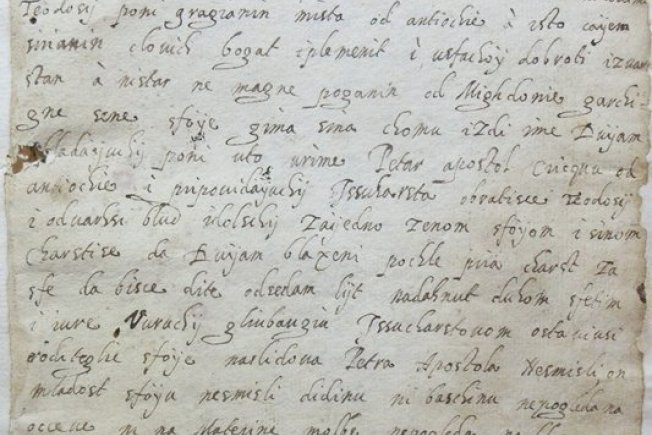 Teodosij poni gragianin mista od antiochie à isto cojem
sirianin clovich bogat iplemenit i usfachoj dobroti izvar
stan à nistar ne magne poganin od Mighdonie garchi
gne sene sfoje gima sina chomu izdi ime Duijam
obladajuchij poni uto vrime Petar apostol Cricqu od
antiochie i pripovidajuchij Issucarsta obratisce i Teodosij
i odvarhsi blud idolschij zajedno zenom sfojom i sinom
charstise da Duijam blaxeni pochle pria charst za
sfe da bisce dite odsedam lijt nadahnut duhom sfetim
i iure Vuruchij gliubaugiu Issucharstovom ostavivsi
roditeglie sfoje naslidova Petra Apostola Nesmisli on
mladost sfoju nesmisli didinu ni baschinu nepogleda na
occeve ni na Materine molbe nepogleda na